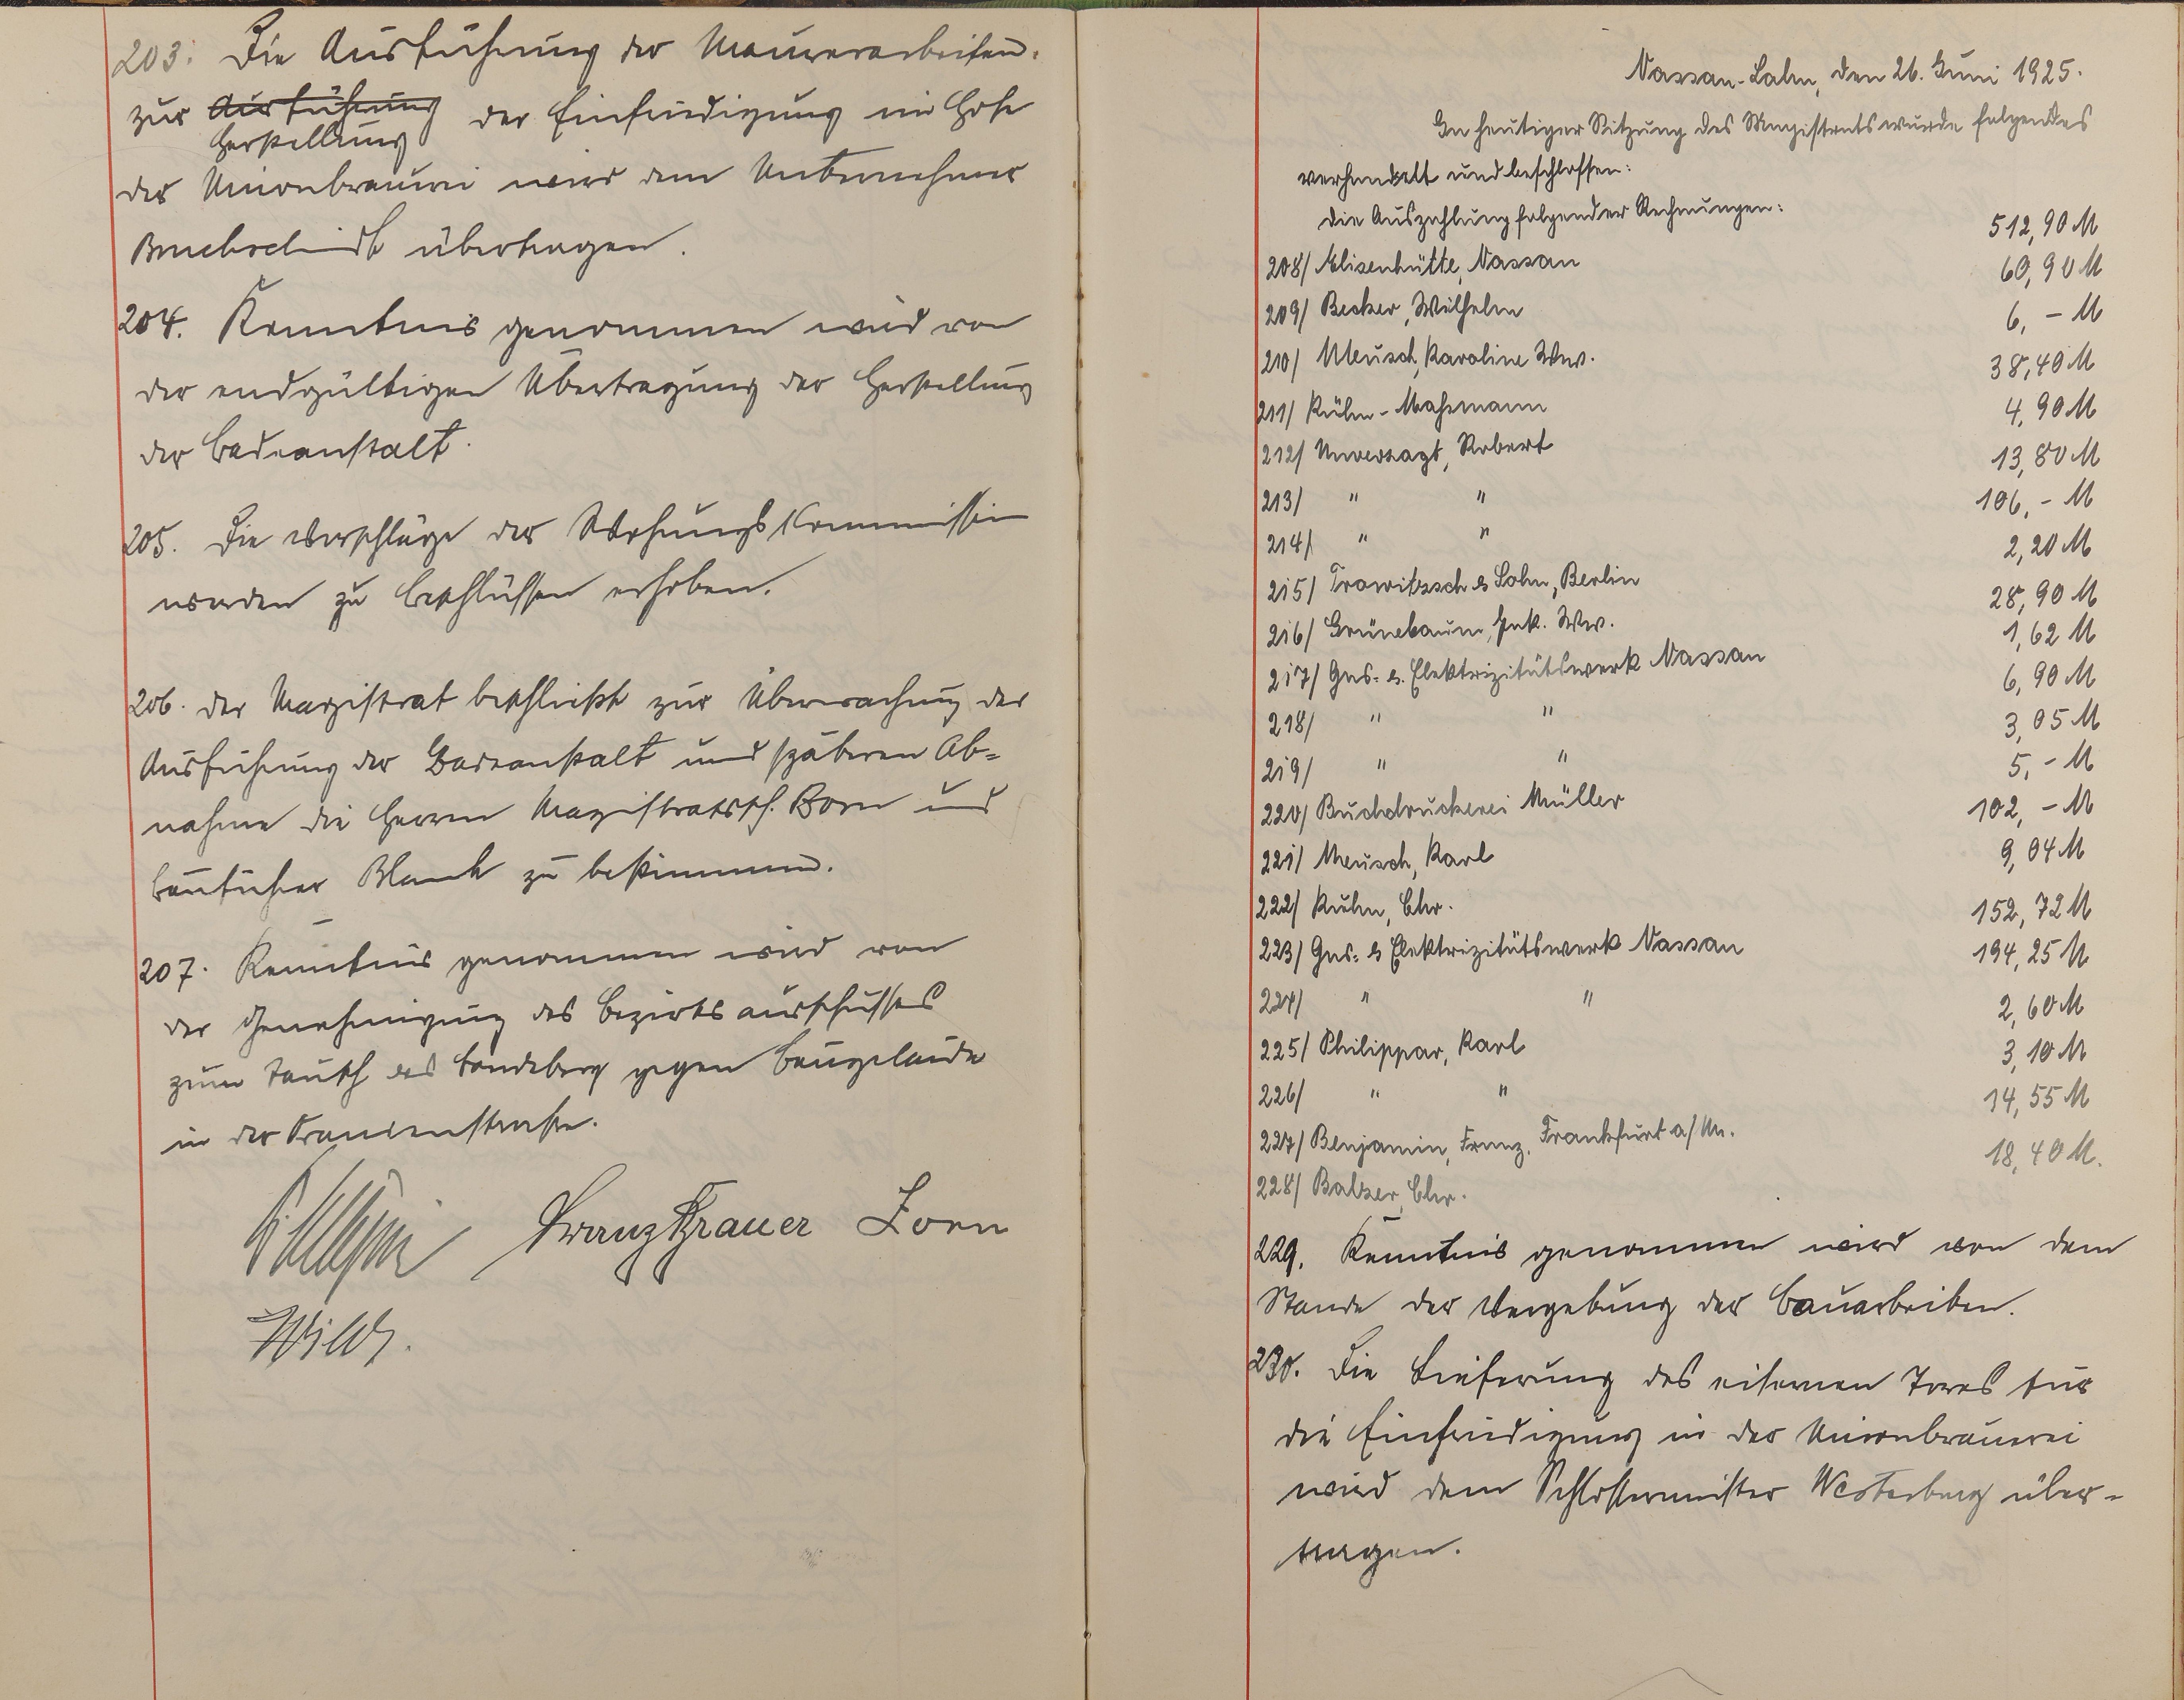 203. Die Ausführung der Maurerarbeiten
zur Ausführung der Einfriedigung im Hofe
Herstellung
der Unionbrauerei wird dem Unternehmer
Buchschmidt übertragen.
204. Kenntnis genommen wird von
der endgültigen Übertragung der Herstellung
der Badeanstalt.
205. Die Vorschläge der Wohnungskommission
werden zu Beschlüssen erhoben.
206. Der Magistrat beschließt zur Überwachung der
Ausführung der Badeanstalt und späteren Ab=
nahme die Herren Magistratssch. Born und
Bauführer Blank zu bestimmen.
207. Kenntnis genommen wird von
der Genehmigung des Bezirksausschusses
zum Tausch des gegen Baugelände
in der
Franz Brauer Zorn
Wild.
Nassau-Lahn, den 26. Juni 1925.
In heutiger Sitzung des Magistrats wurde folgendes
verhandelt und beschlossen:
Die Auszahlung folgender Rechnungen:
208/ Elisenhütte, Nassau 512,90 M
209/ Becker, Wilhelm 60,90 M
210/ Meusch, Karoline Ww. 6,- M
211/ Kühn-Mahsmann 38,40 M
212/ Unverzagt, Robert 4,90 M
213/ " " 13,80 M
214/ " " 106,- M
215/ Trowitzsch & Sohn, Berlin 2,20 M
216/ Grünebaum, Ww. 28,90 M
217/ Gas- & Elektrizitätswerk Nassau 1,62 M
218/ " " 6,90 M
219/ " " 3,05 M
220/ Buchdruckerei Müller 5,- M
221/ Meusch, Karl 102,- M
222/ Kuhn, Chr. 9,04 M
223/ Gas- & Elektrizitätswerk Nassau 152,72 M
224/ " " 194,25 M
225/ Philippar, Karl 2,60 M
226/ " " 3,10 M
227/ Benjamin, Franz, Frankfurt a/M. 14,55 M
228/ Balzer, Chr. 18,40 M.
229. Kenntnis genommen wird von dem
Stande der Vergebung der Bauarbeiten.
230. Die Lieferung des eisernen Tores für
die Einfriedigung in der Unionbrauerei
wird dem Schlossermeister Westerburg über=
tragen.